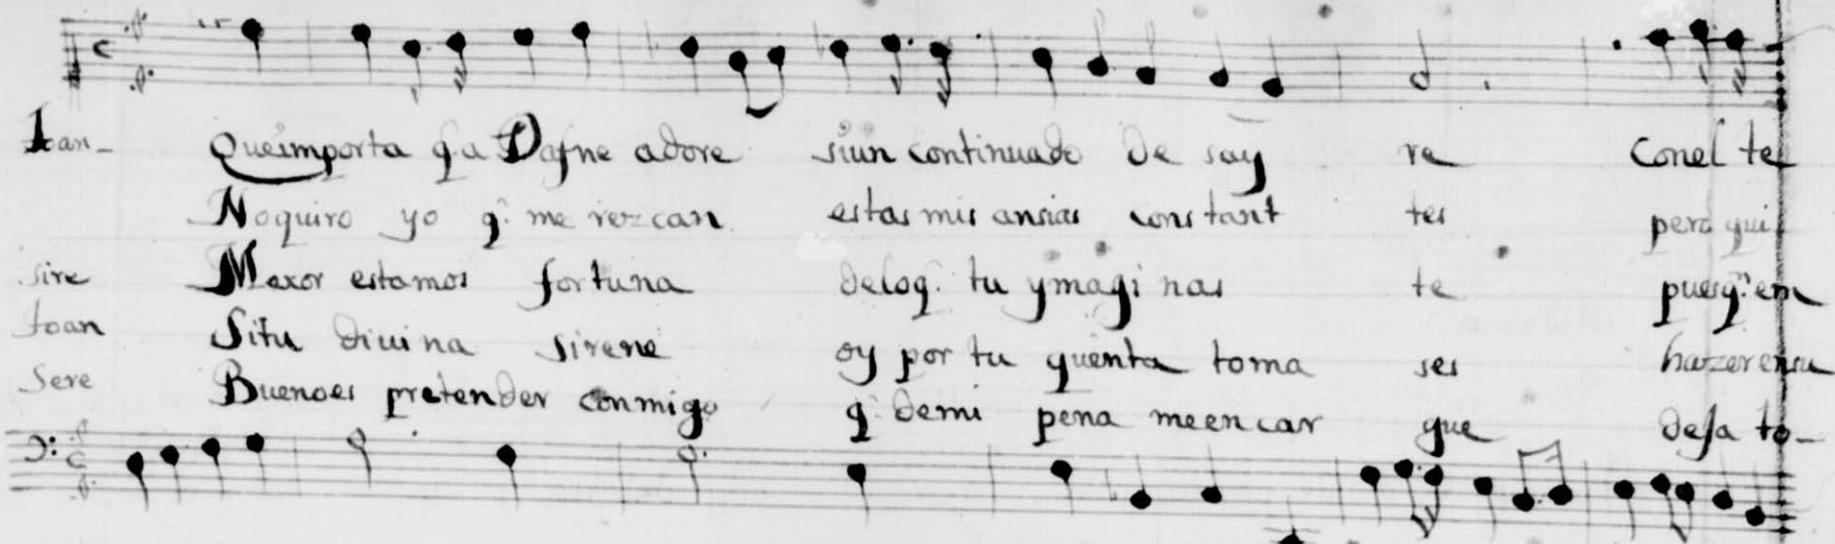 Ioan- Queimporta q̃ a Dafne adore siun continuado de say re Conel te
Noquiro yo q̃ me rezcan estas mis ansias constant tes pero qui
sire Mexor estamos fortuna deloq̃ tu ymagi nas te puesq̃ en
Ioan Situ diuina sirene oy por tu quenta toma ses hazer ensu
Sere Buenoes pretender conmigo q̃ demi pena meencar gue desa to-